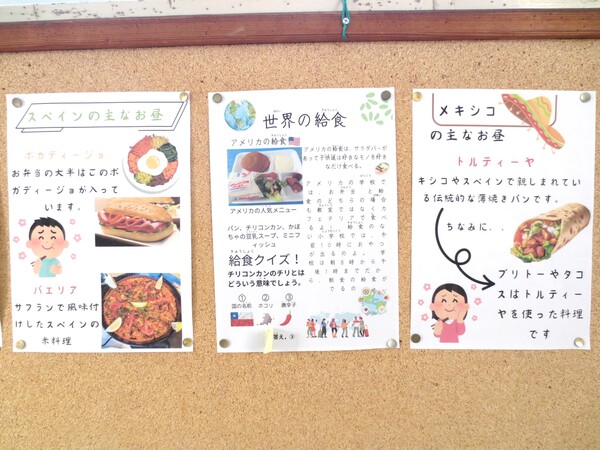 スペインの主なお昼
ボカディージョ
お弁当の大半はこのボ
ガディージョが入って
います。
パエリア
サフランで風味付
けしたスペインの
米料理
世界の給食
せかい きゅうしょく
アメリカの給食
アメリカの給食は、サラダバーが
あって子供達は好きなモノを好き
なだけ食べる。
アメリカの人気メニュー
パン、チリコンカン、かぼ
ちゃの豆乳スープ、ミニフ
ィッシュ
アメリカの学校で
は、お弁当と給
食のどちらの場合
も教室ではなくカ
フェテリアで食べ
るよ。給食のな
い小学校では、午
前10時におやつ
が出るのよ。学
校は朝8時から午
後1時までだか
ら、朝食の給食が
でるの
給食クイズ！
きゅうしょく
チリコンカンのチリとは
どういう意味でしょう。
① ② ③
国の名前 ホコリ 唐辛子
答え、③
メキシコ
の主なお昼
トルティーヤ
キシコやスペインで親しまれてい
る伝統的な薄焼きパンです。
ちなみに、、
ブリトーやタコ
スはトルティー
ヤを使った料理
です